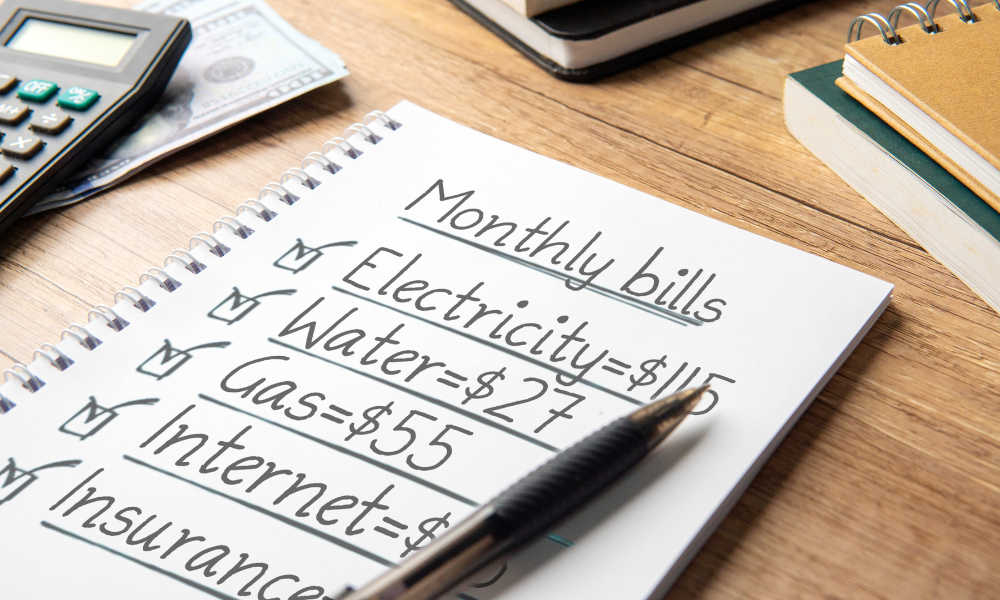 OFF
Monthly bills
Electricity=$115
Water=$27
Gas=$55
Internet=$
Insurance=